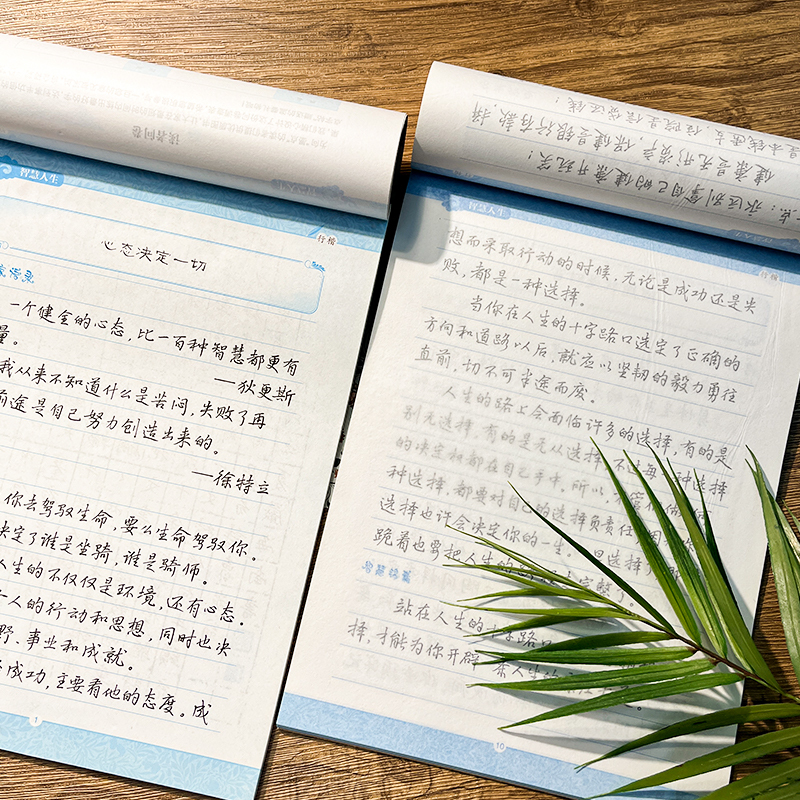 读者问卷
智慧人生
行楷
心态决定一切
一个健全的心态，比一百种智慧都更有
量。
——狄更斯
我从来不知道什么是苦闷，失败了再
前途是自己努力创造出来的。
——徐特立
你去驾驭生命，要么生命驾驭你。
决定了谁是坐骑，谁是骑师。
人生的不仅仅是环境，还有心态。
个人的行动和思想，同时也决
野、事业和成就。
成功，主要看他的态度。成
1
点：永远别拿自己的健康开玩笑！
健康是无形资产，保健是银行存款，拼
智慧人生
行楷
想而采取行动的时候，无论是成功还是失
败，都是一种选择。
当你在人生的十字路口选定了正确的
方向和道路以后，就应以坚韧的毅力勇往
直前，切不可半途而废。
人生的路上会面临许多的选择，有的是
别无选择，有的是无从选择，不过每一种选择
的决定权都在自己手中。所以
种选择，都要对自己的选择负责任
选择也许会决定你的一生。旦选择
跪着也要把人生的完整了。
智慧锦囊
站在人生的十字路口
择，才能为你开辟一条人生
10